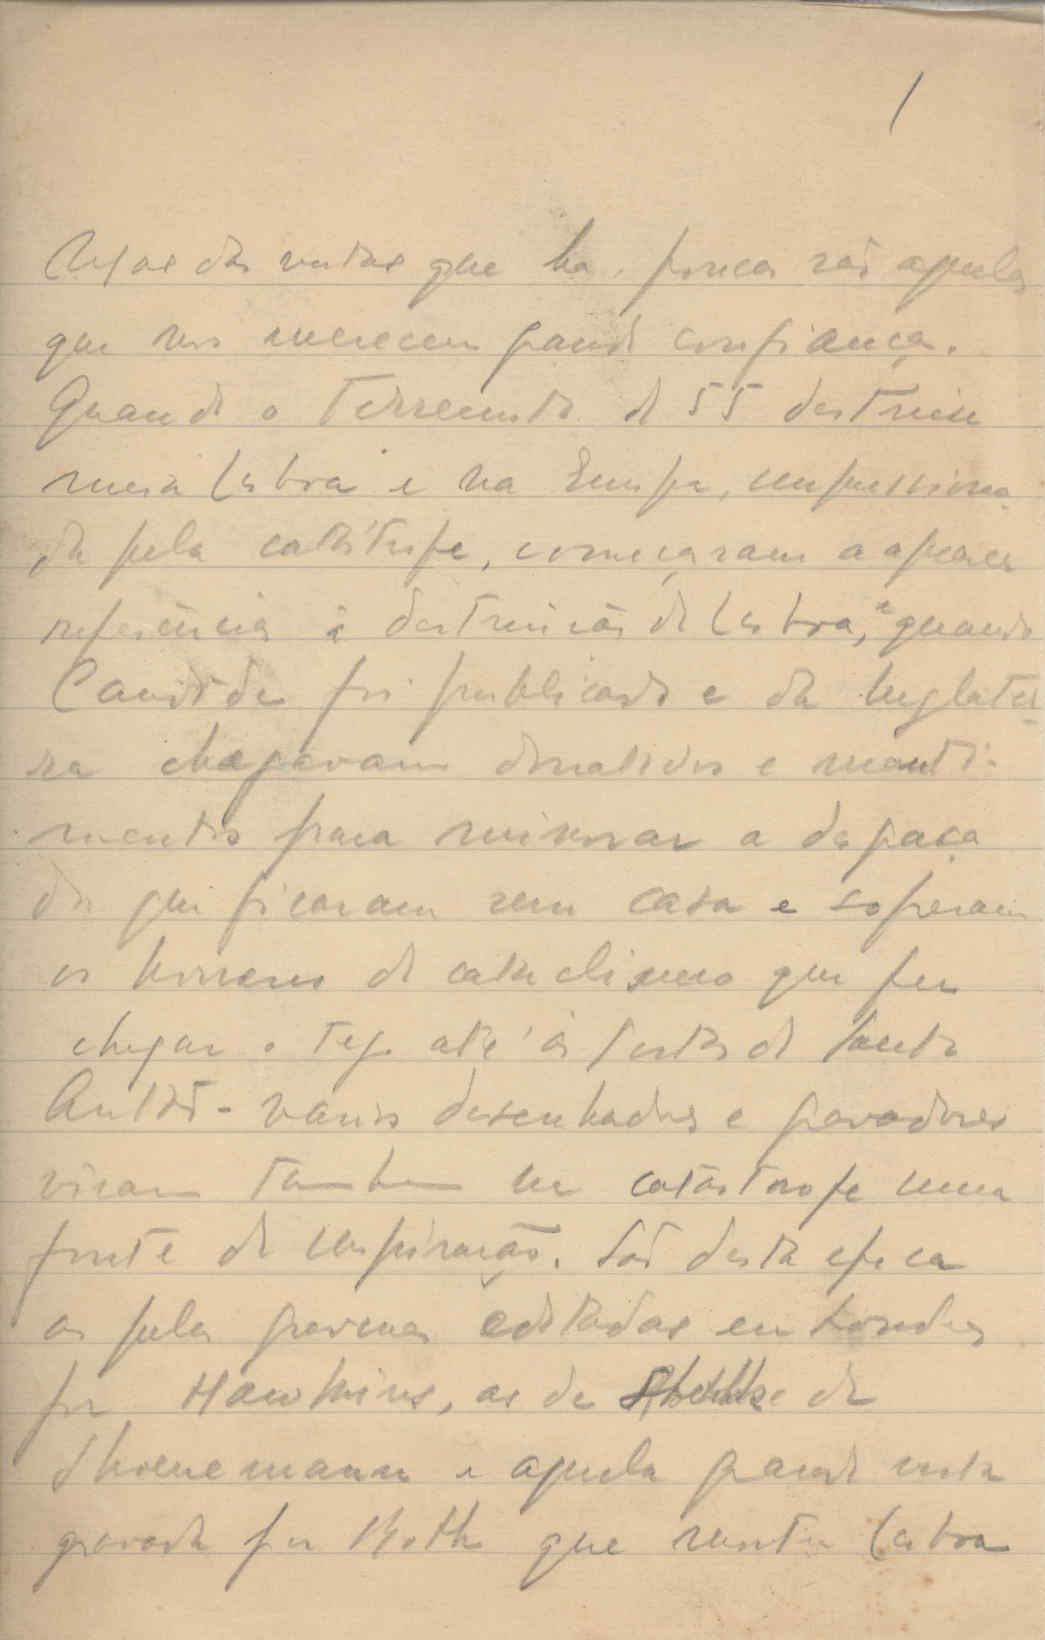 1
das vistas que ha, poucas são aquelas
que nos merecem grande confiança.
Quando o Terremoto de 55 destruiu
meia Lisboa e na Europa, impressiona
da pela catástrofe, começaram a aparecer
referências à destruição de Lisboa, e quando
Candide foi publicado e da Inglater
ra chegavam donativos e manti-
mentos para minorar a desgraça
dos que ficaram sem casa e sofreram
os horrores do cataclismo que fez
chegar o Tejo até às Portas de Santo
Antão - varios desenhadores e gravadores
viram tambem na catástrofe uma
fonte de inspiração. São desta epoca
as belas gravuras editadas em Londres
por Hawkins, as de de
e aquela grande vista
gravada por que mostra Lisboa